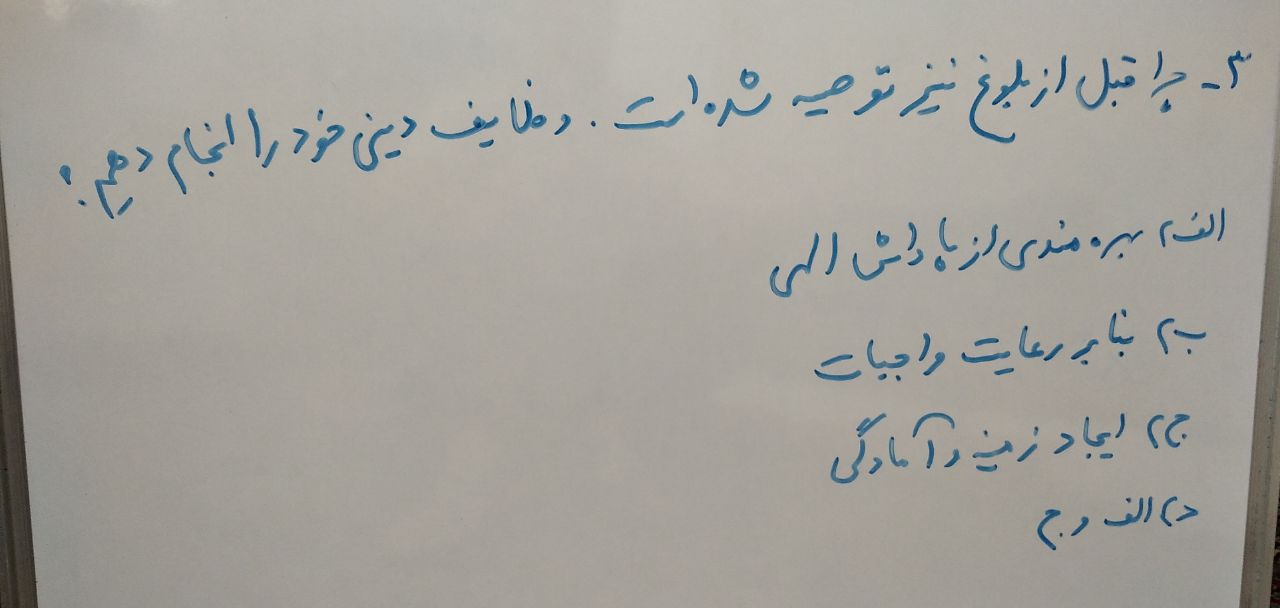 ۳- چرا قبل از بلوغ نیز توصیه شده است. وظایف دینی خود را انجام دهیم؟
الف) بهره مندی از پاداش الهی
ب) بنابر رعایت واجبات
ج) ایجاد زمینه و آمادگی
د) الف و ج